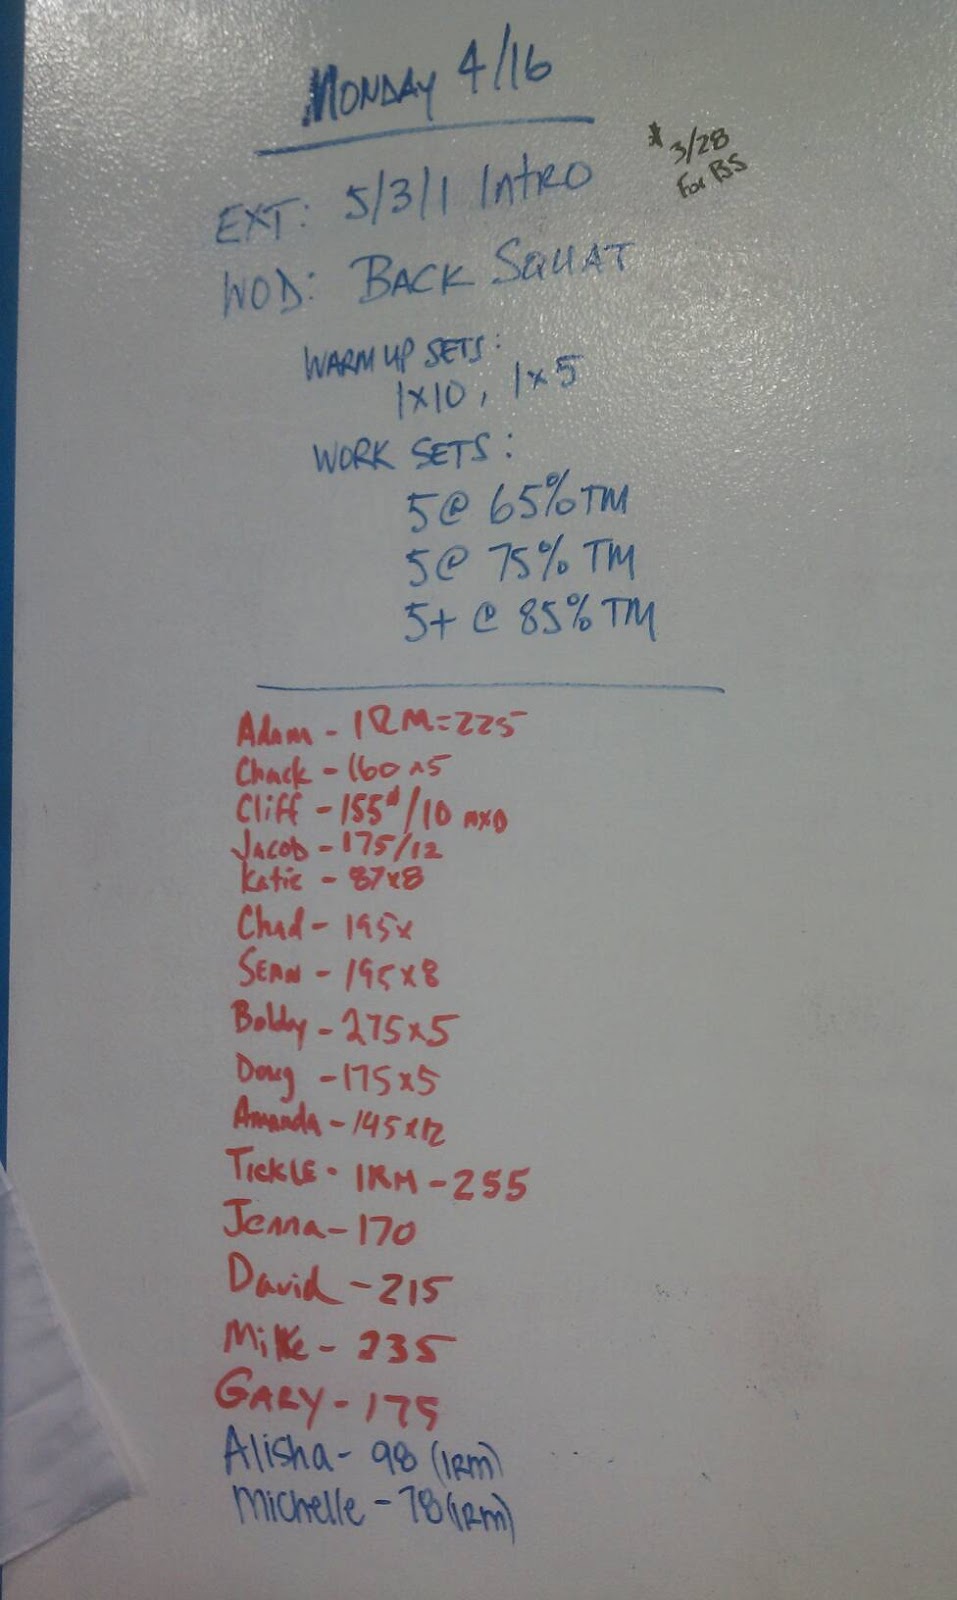 MONDAY 4/16
* 3/28
For BS
EXT: 5/3/1 Intro
WOD: BACK SQUAT
WARM UP SETS:
1x10, 1x5
WORK SETS:
5@ 65% TM
5@ 75% TM
5+ @ 85% TM
Adam - 1RM=225
Chuck - 160 x5
Cliff - 155#/10
Jacob - 175/12
Katie - 87x8
Chad - 195x
SEAN - 195x8
Bobby - 275x5
Doug - 175x5
Amanda - 145x12
TICKLE - 1RM - 255
Jenna - 170
David - 215
Mike - 235
GARY - 175
Alisha - 98 (1RM)
Michelle - 78 (1RM)